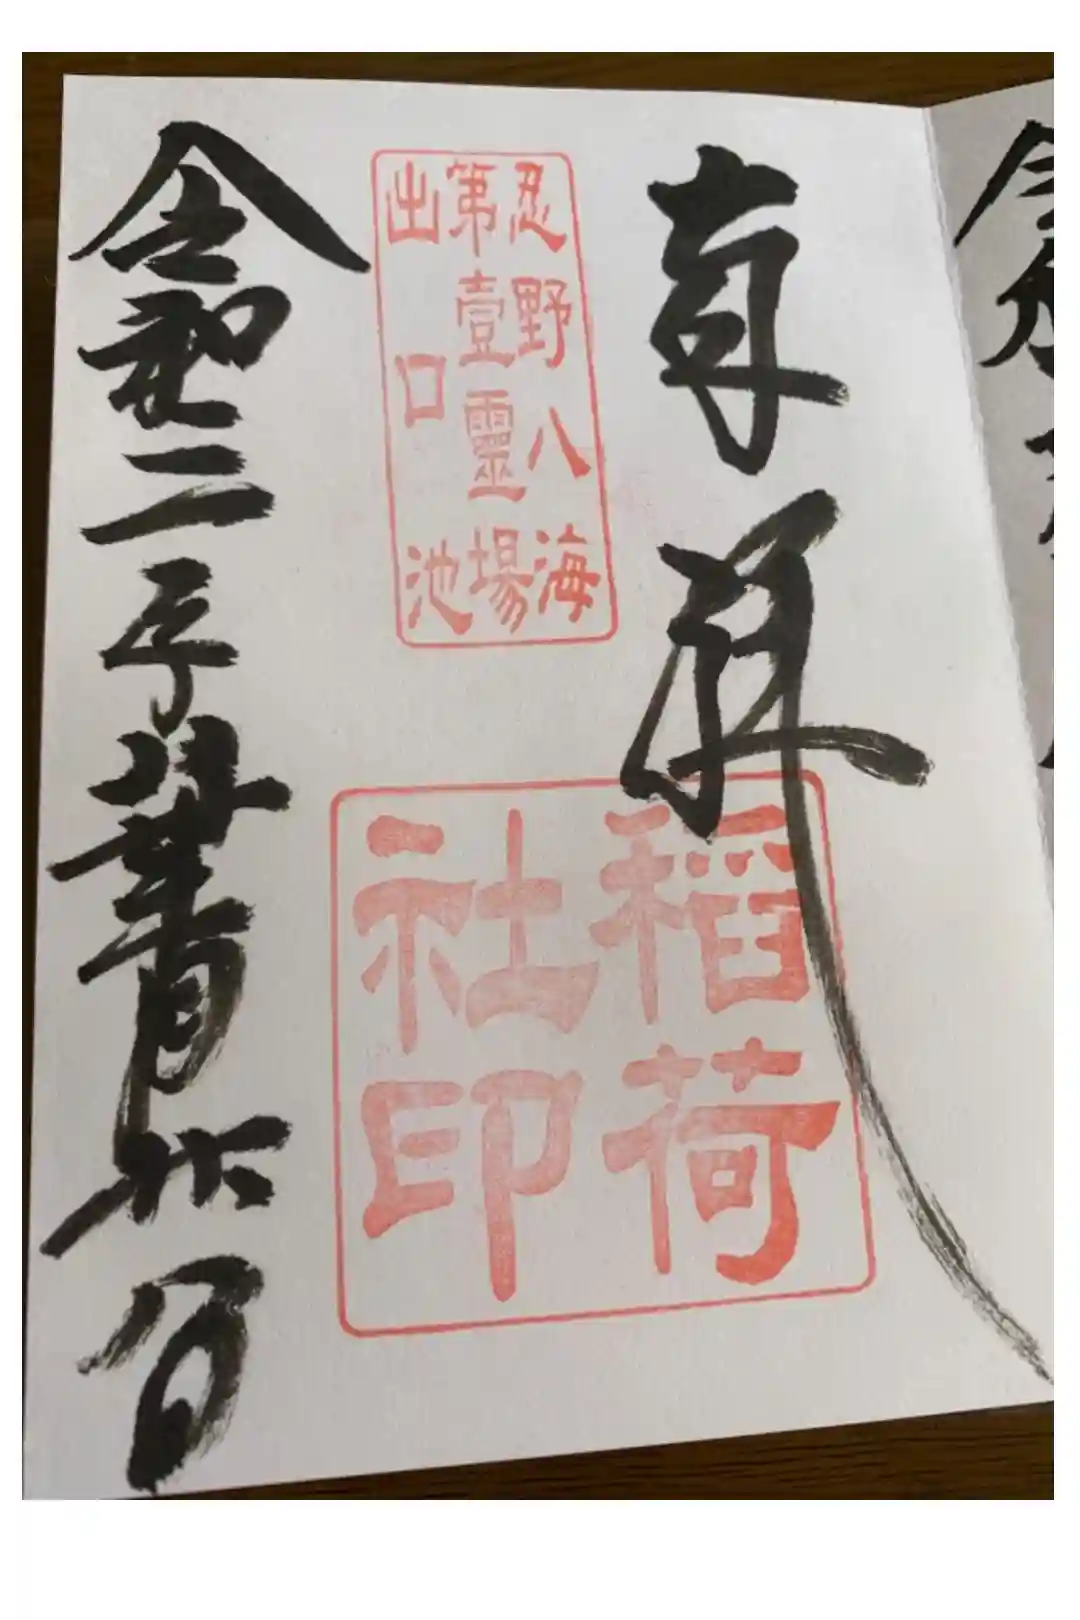 奉拝
忍野八海
第壹靈場
出口池
稲荷
社印
令和二年 月 日